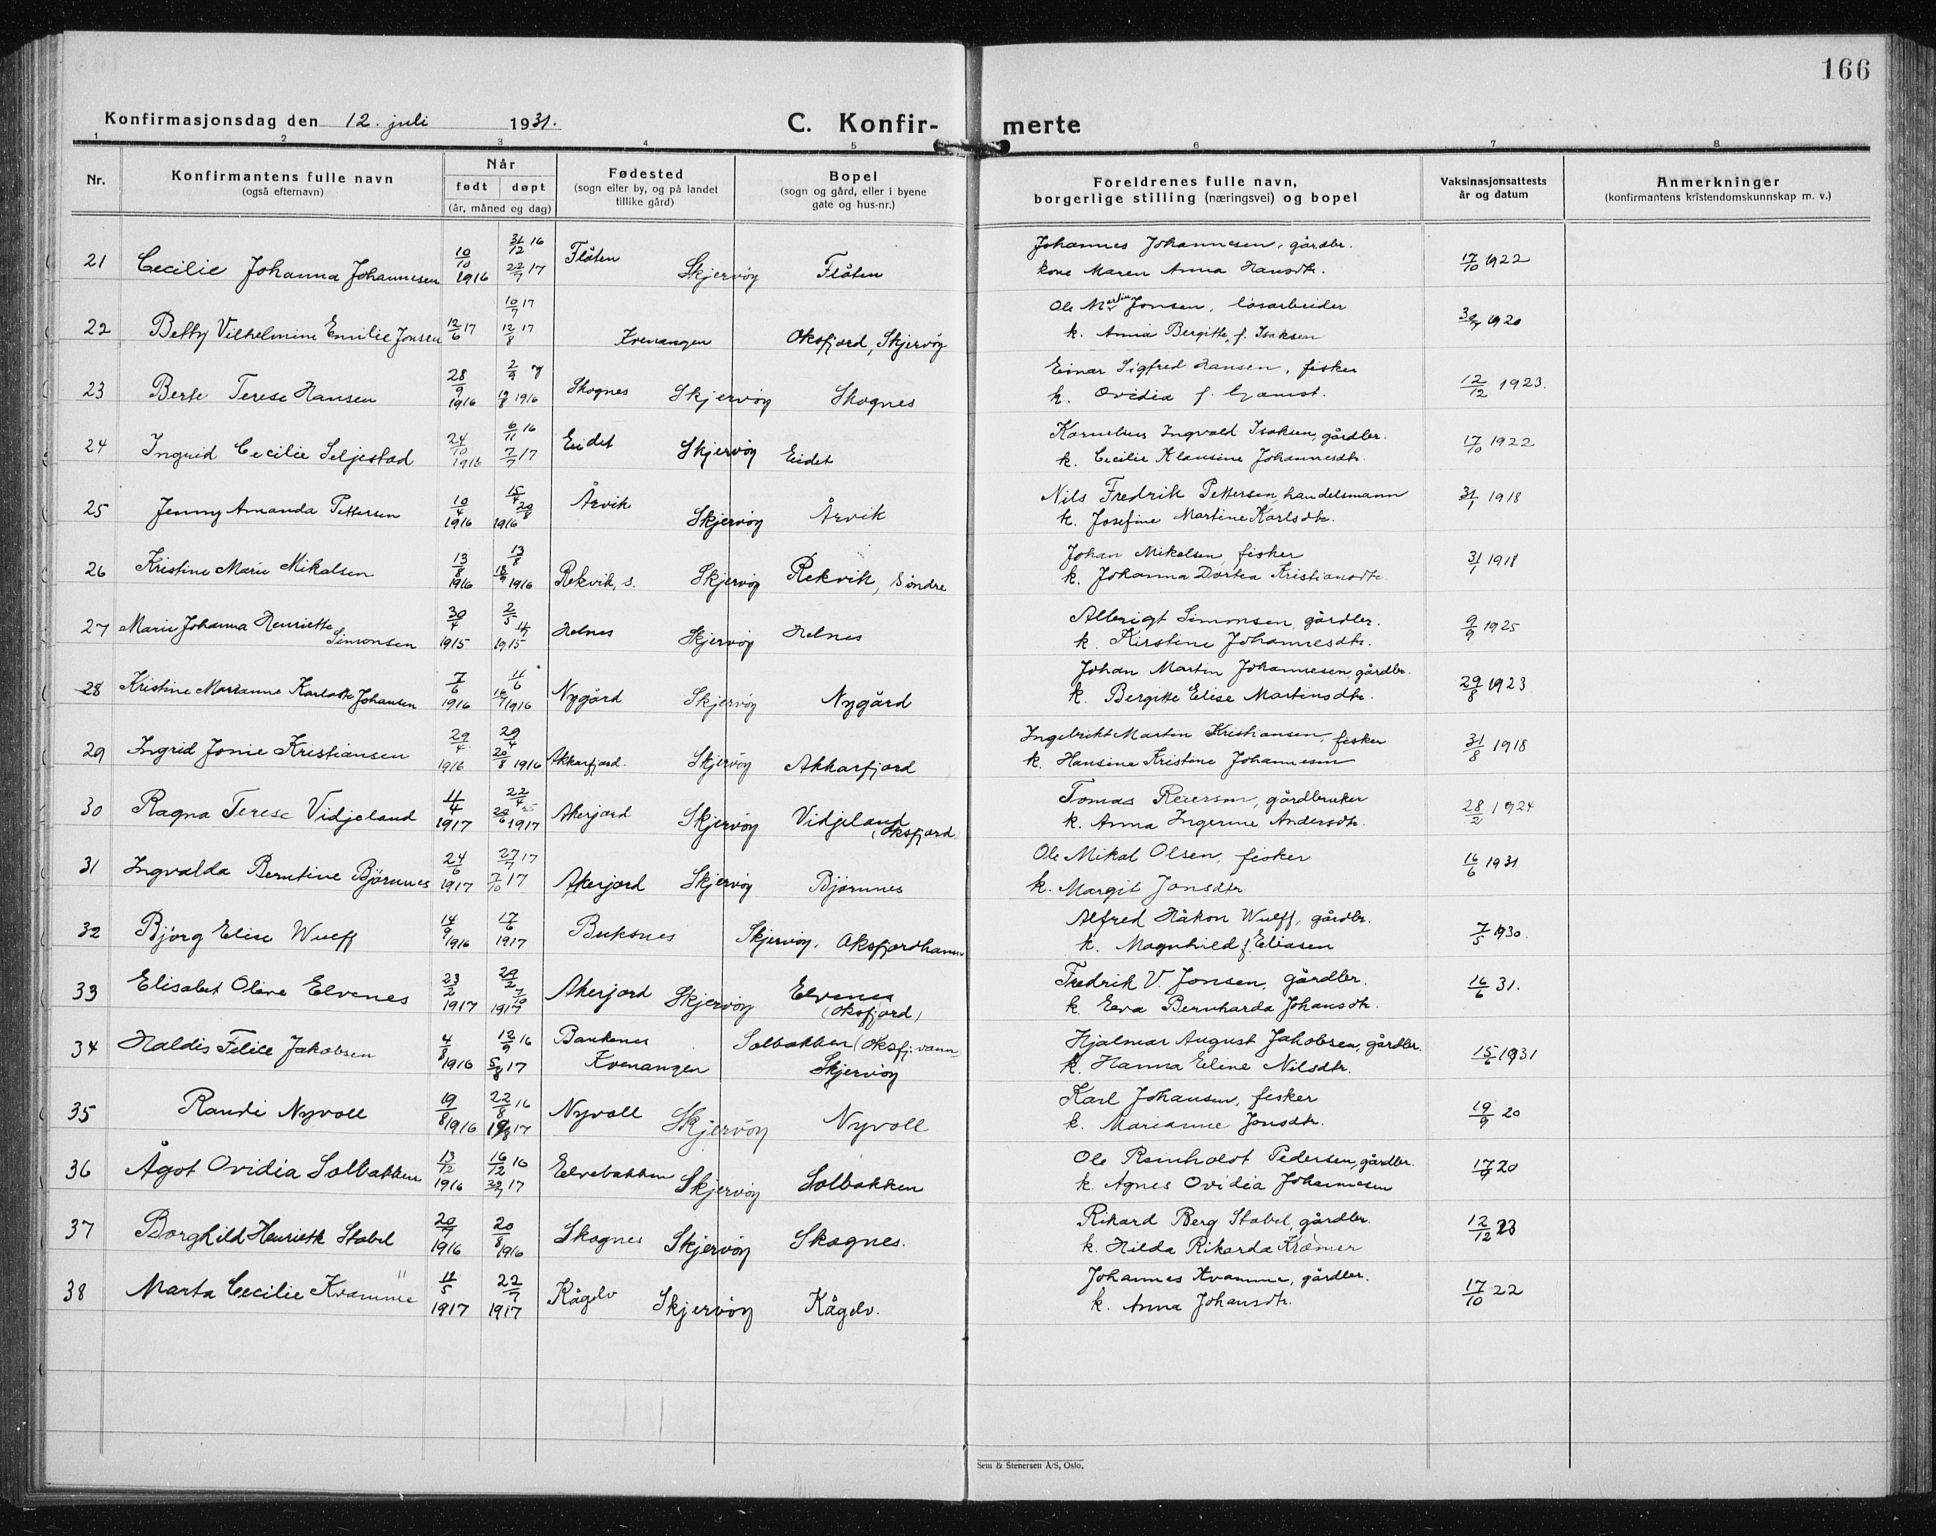 166
Konfirmasjonsdag den 12. juli 1931.
C. Konfir- merte
1 2 3 4 5 6 7 8
Nr.
Konfirmantens fulle navn
(også efternavn)
Når
født døpt
(år, måned og dag)
Fødested
(sogn eller by, og på landet
tillike gård)
Bopel
(sogn og gård, eller i byene
gate og hus-nr.)
Foreldrenes fulle navn,
borgerlige stilling (næringsvei) og bopel
Vaksinasjonsattests
år og datum
Anmerkninger
(konfirmantens kristendomskunnskap m. v.)
21 Cecilie Johanna Johannesen 10/10 1916 31/12 16 22/7 17 Flåten Skjervöy Flåten Johannes Johannesen, gårdbr.
kone Maren Anna Hansdtr. 17/10 1922
22 Betty Vilhelmine Emilie Jonsen 12/6 17 10/7 17 12/8 17 Kvenangen Oksfjord, Skjervöy Ole Martin Jonsen, løsarbeider
k. Anna Bergitte f. Isaksen 1920
23 Berte Terese Hansen 28/9 1916 Skognes Skjervöy Skognes Einar Sigfred Hansen, fisker
k. Ovidia f. Gamst. 12/12 1923.
24 Ingrid Cecilie Seljestad 24/10 1916 6/11 16 7/7 17 Eidet Skjervöy Eidet Kornelius Ingvald Isaksen, gårdbr.
k. Cecilie Klausine Johannesdtr. 17/10 1922
25 Jenny Amanda Pettersen 10/4 1916 15/4 29/8 1916 Årvik Skjervöy Årvik Nils Fredrik Pettersen, handelsmann
k. Josefine Martine Karlsdtr. 31/1 1918
26 Kristine Marie Mikalsen 13/8 1916 13/8 1916 Rekvik, s. Skjervöy Rekvik, Söndre Johan Mikalsen, fisker
k. Johanna Dortea Kristiansdtr. 31/1 1918
27 Marie Johanna Henriette
Simonsen 30/4 1915 2/5 1915 Helnes Skjervöy Helnes Albrigt Simonsen, gårdbr.
k. Kirstine Johannesdtr. 9/9 1925
28 Kristine Marianne Karlotte Johansen 7/6 1916 11/6 1916 Nygård Skjervöy Nygård Johan Martin Johannesen, gårdbr.
k. Bergitte Elise Martinsdtr. 29/8 1923
29 Ingrid Jonie Kristiansen 29/4 1916 29/4 20/8 1916 Akkarfjord Skjervöy Akkarfjord Ingebrikt Martin Kristiansen, fisker
k. Hansine Kristine Johannesen 31/8 1918
30 Ragna Terese Vidjeland 11/4 1917 22/4 1917 Akerjord Skjervöy Vidjeland
(Oksfjord) Tomas Reiersen, gårdbruker
k. Anna Ingerine Andersdtr. 28/2 1924
31 Ingvalda Berntine Björnnes 24/6 1917 27/7 17 7/10 17 Akerjord Skjervöy Björnnes Ole Mikal Olsen, fisker
k. Margit Jonsdtr. 16/6 1931
32 Bjórg Elise Wulff 14/9 1916 17/6 1917 Buksnes Skjervöy, Oksfjordhamn Alfred Håkon Wulff, gårdbr.
k. Magnhild f. Eliasen 7/5 1930.
33 Elisabet Oline Elvenes 23/2 1917 1917 Akerjord Skjervöy Elvenes
(Oksfjord) Fredrik V. Jonsen, gårdbr.
k. Eva Bernharda Johansdtr. 16/6 31.
34 Haldis Felice Jakobsen 4/8 1916 12/9 16 5/8 17 Kvenangen Solbakken (Oksfj. vann
Skjervöy Hjalmar August Jakobsen, gårdbr.
k. Hanna Eline Nilsdtr. 15/6 1931
35 Randi Nyvoll 19/8 1916 22/8 16 Nyvoll Skjervöy Nyvoll Karl Johansen, fisker
k. Marianne Jonsdtr. 19/9 20
36 Ågot Ovidia Solbakken 13/12 1916 16/12 16 Elvebakken Skjervöy Solbakken Ole Reinholdt Pedersen, gårdbr.
k. Agnes Ovidia Johannesen
37 Borghild Henriette Stabel 1916 20/8 1916 Skognes Skjervöy Skognes. Rikard Berg Stabel, gårdbr.
k. Hilda Rikarda Kræmer 12/12 23
38 Marta Cecilie Kvamme 11/5 1917 22/7 1917 Kågelv Skjervöy Kågelv. Johannes Kvamme, gårdbr.
k. Anna Johansdtr. 17/10 22
Sem & Stenersen A/S, Oslo.